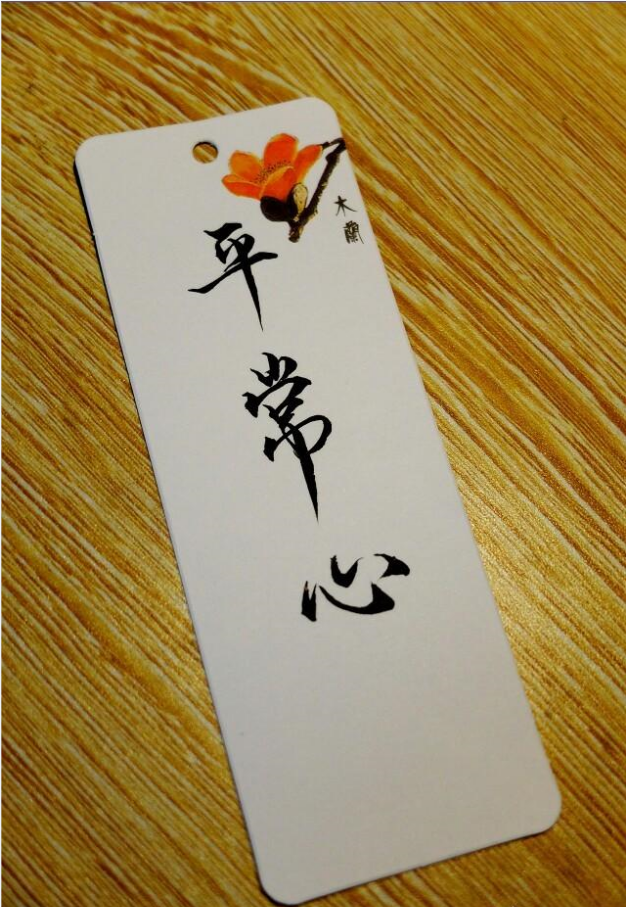 木蘭
平常心